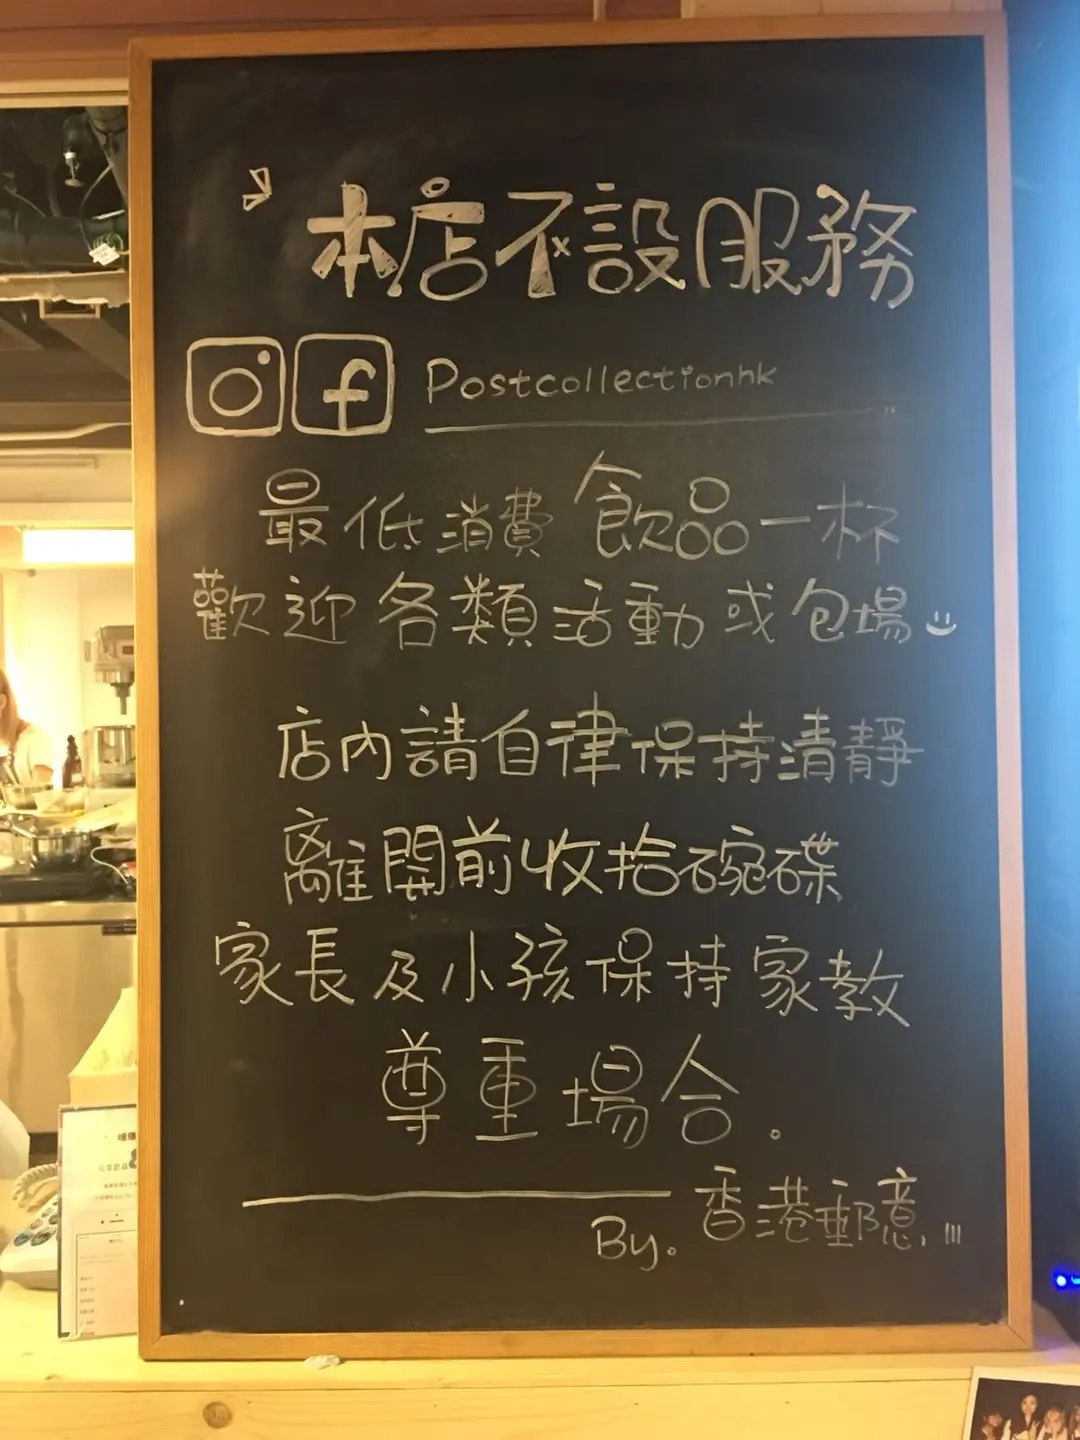 本店不設服務
f Postcollectionhk
最低消費 飲品一杯
歡迎各類活動或包場
店內請自律保持清靜
離開前收拾碗碟
家長及小孩保持家教
尊重場合。
By. 香港郵意